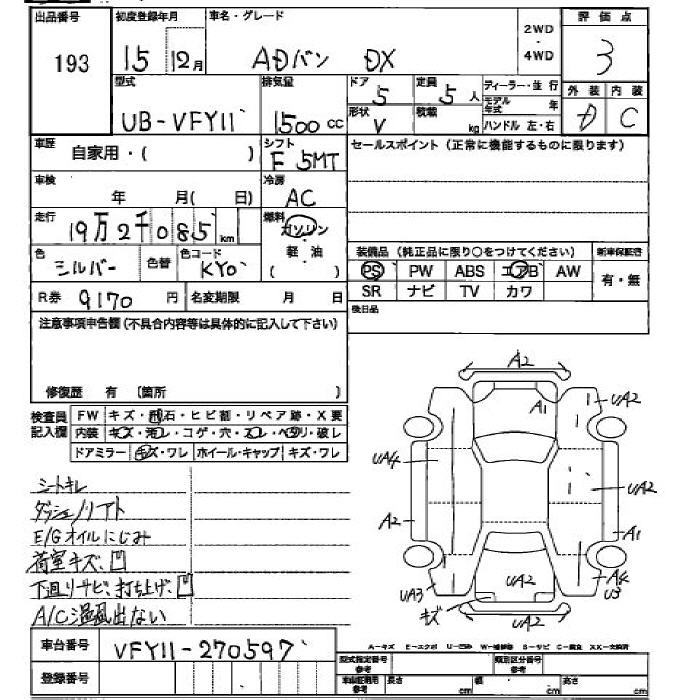 出品番号
193
初度登録年月
15 12月
車名・グレード
ADバン DX
2WD
・
4WD
評価点
3
型式
UB-VFY11
排気量
1500cc
ドア
5
定員
5人
ディーラー・並行
モデル年式 年
ハンドル 左・右
形状
V
積載
kg
外装
D
内装
C
車歴
自家用・( )
シフト
F 5MT
セールスポイント(正常に機能するものに限ります)
車検
年 月( 日)
冷房
AC
走行
19万2千085km
燃料
ガソリン
・
軽・油
( )
色
シルバー
色替
色コード
KY0
装備品(純正品に限り○をつけてください)
新車保証書
PS PW ABS エアB AW
有・無
SR ナビ TV カワ
R券 9170円
名変期限 月 日
後日品
注意事項申告欄(不具合内容等は具体的に記入して下さい)
修復歴 有 [箇所 ]
検査員記入欄
FW キズ・飛石・ヒビ割・リペア跡・X要
内装 キズ・汚レ・コゲ・穴・スレ・ベタリ・破レ
ドアミラー キズ・ワレ ホイール・キャップ キズ・ワレ
シートキレ
ダッシュノリアト
E/Gオイルにじみ
荷室キズ、凹
下廻リサビ、打ち上げ、凹
A/C温風出ない
A2
A1
UA2
UA4
UA2
A2
A1
UA3
キズ
UA2
UA2
A4
U3
A-キズ E-エクボ U-凹み W-補修跡 S-サビ C-腐食 XX-交換済
車台番号
VFY11-270597
登録番号
型式指定番号
参考
類別区分番号
参考
車庫証明用
参考
長さ cm
幅 cm
高さ cm